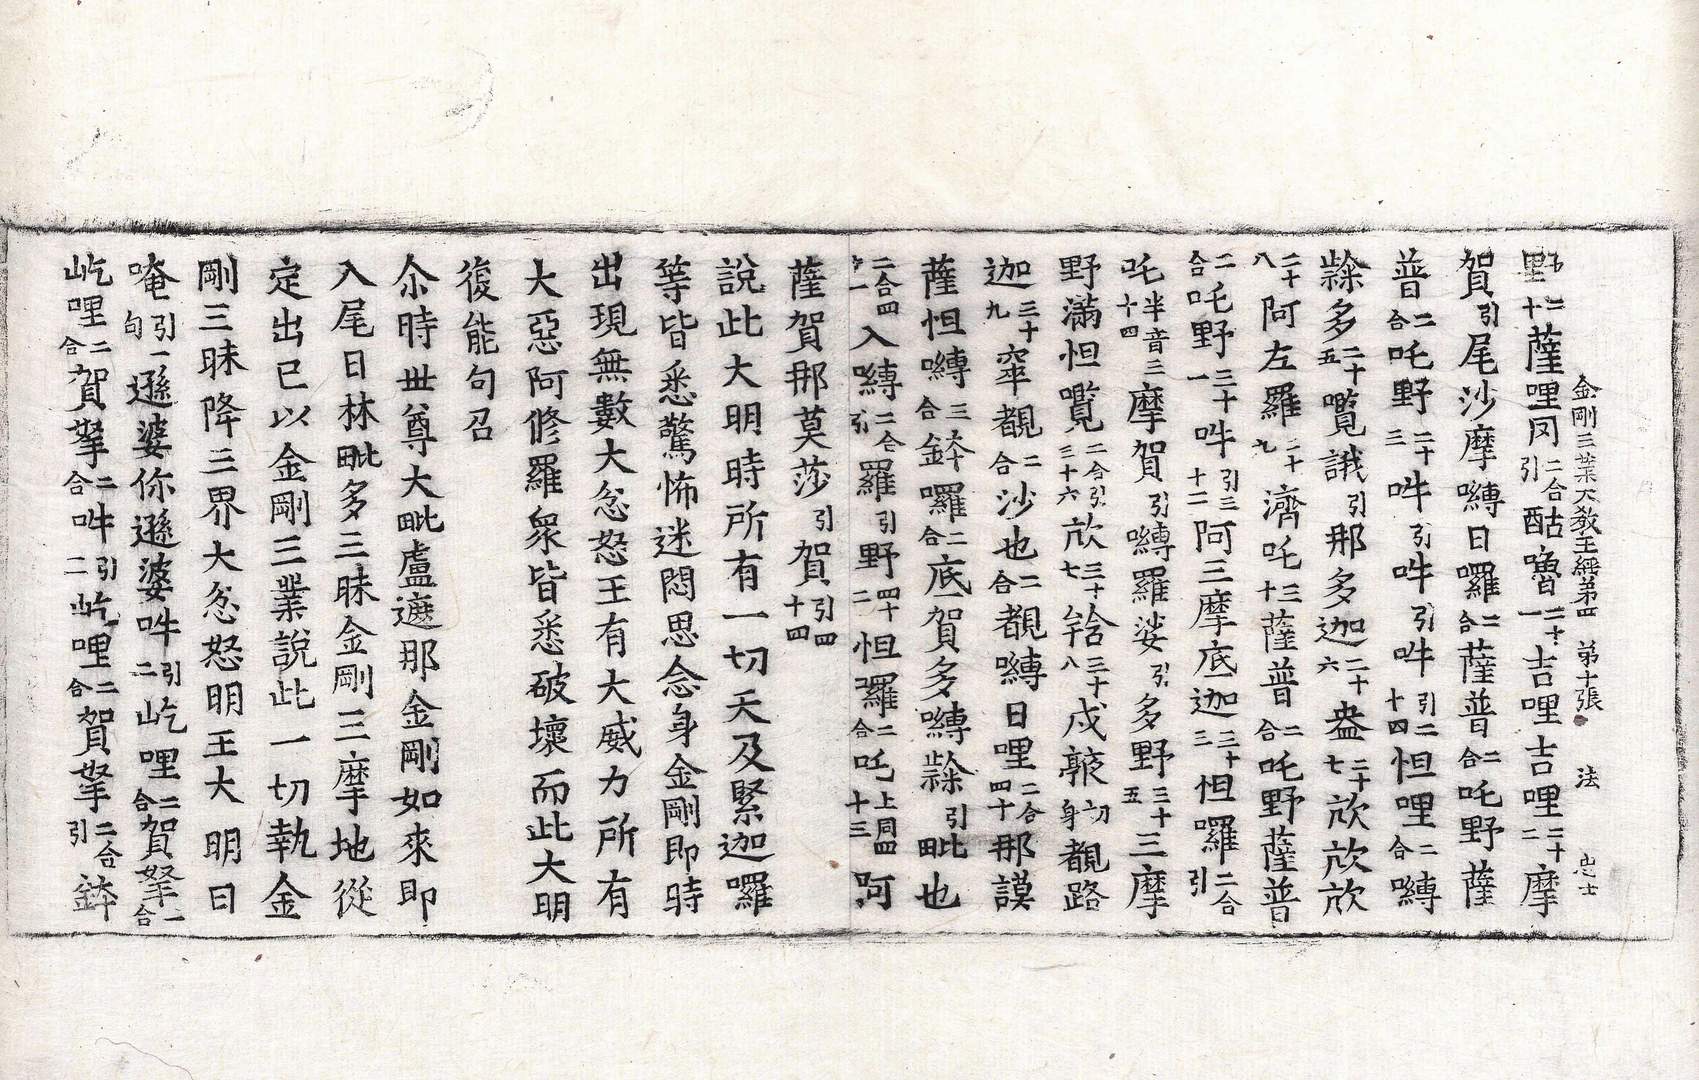 金剛三業大教王經第四 第十張 法 忠士
野二十薩哩凤二合引酤嚕二十一吉哩吉哩二十二摩
賀引尾沙摩嚩日囉二合薩普二合吒野薩
普二合吒野二十三吽引吽引吽引二十四怛哩二合嚩
多二十五囕誐引那多迦二十六盎二十七㰠㰠㰠
二十八阿左羅二十九濟吒三十薩普二合吒野薩普
二合吒野三十一吽引三十二阿三摩底迦三十三怛囉二合引
吒半音三十四摩賀引嚩羅娑引多野三十五三摩
野滿怛囕二合引三十六㰠三十七三十八戍身切覩路
迦三十九窣覩二合沙也二合覩嚩日哩二合四十那謨
薩怛嚩三合鉢囉二合底賀多嚩引毗也
二合四十一入嚩二合引羅引野四十二怛囉二合吒上同四十三阿
薩賀那莫莎引賀引四十四
說此大明時所有一切天及緊迦囉
等皆悉驚怖迷悶思念身金剛即時
出現無數大忿怒王有大威力所有
大惡阿修羅眾皆悉破壞而此大明
復能句召
尒時世尊大毗盧遮那金剛如來即
入尾日林毗多三昧金剛三摩地從
定出已以金剛三業說此一切執金
剛三昧降三界大忿怒明王大明曰
唵引一句遜婆你遜婆吽引二屹哩二合賀拏二合
屹哩二合賀拏二合吽引二屹哩二合賀拏二合引鉢